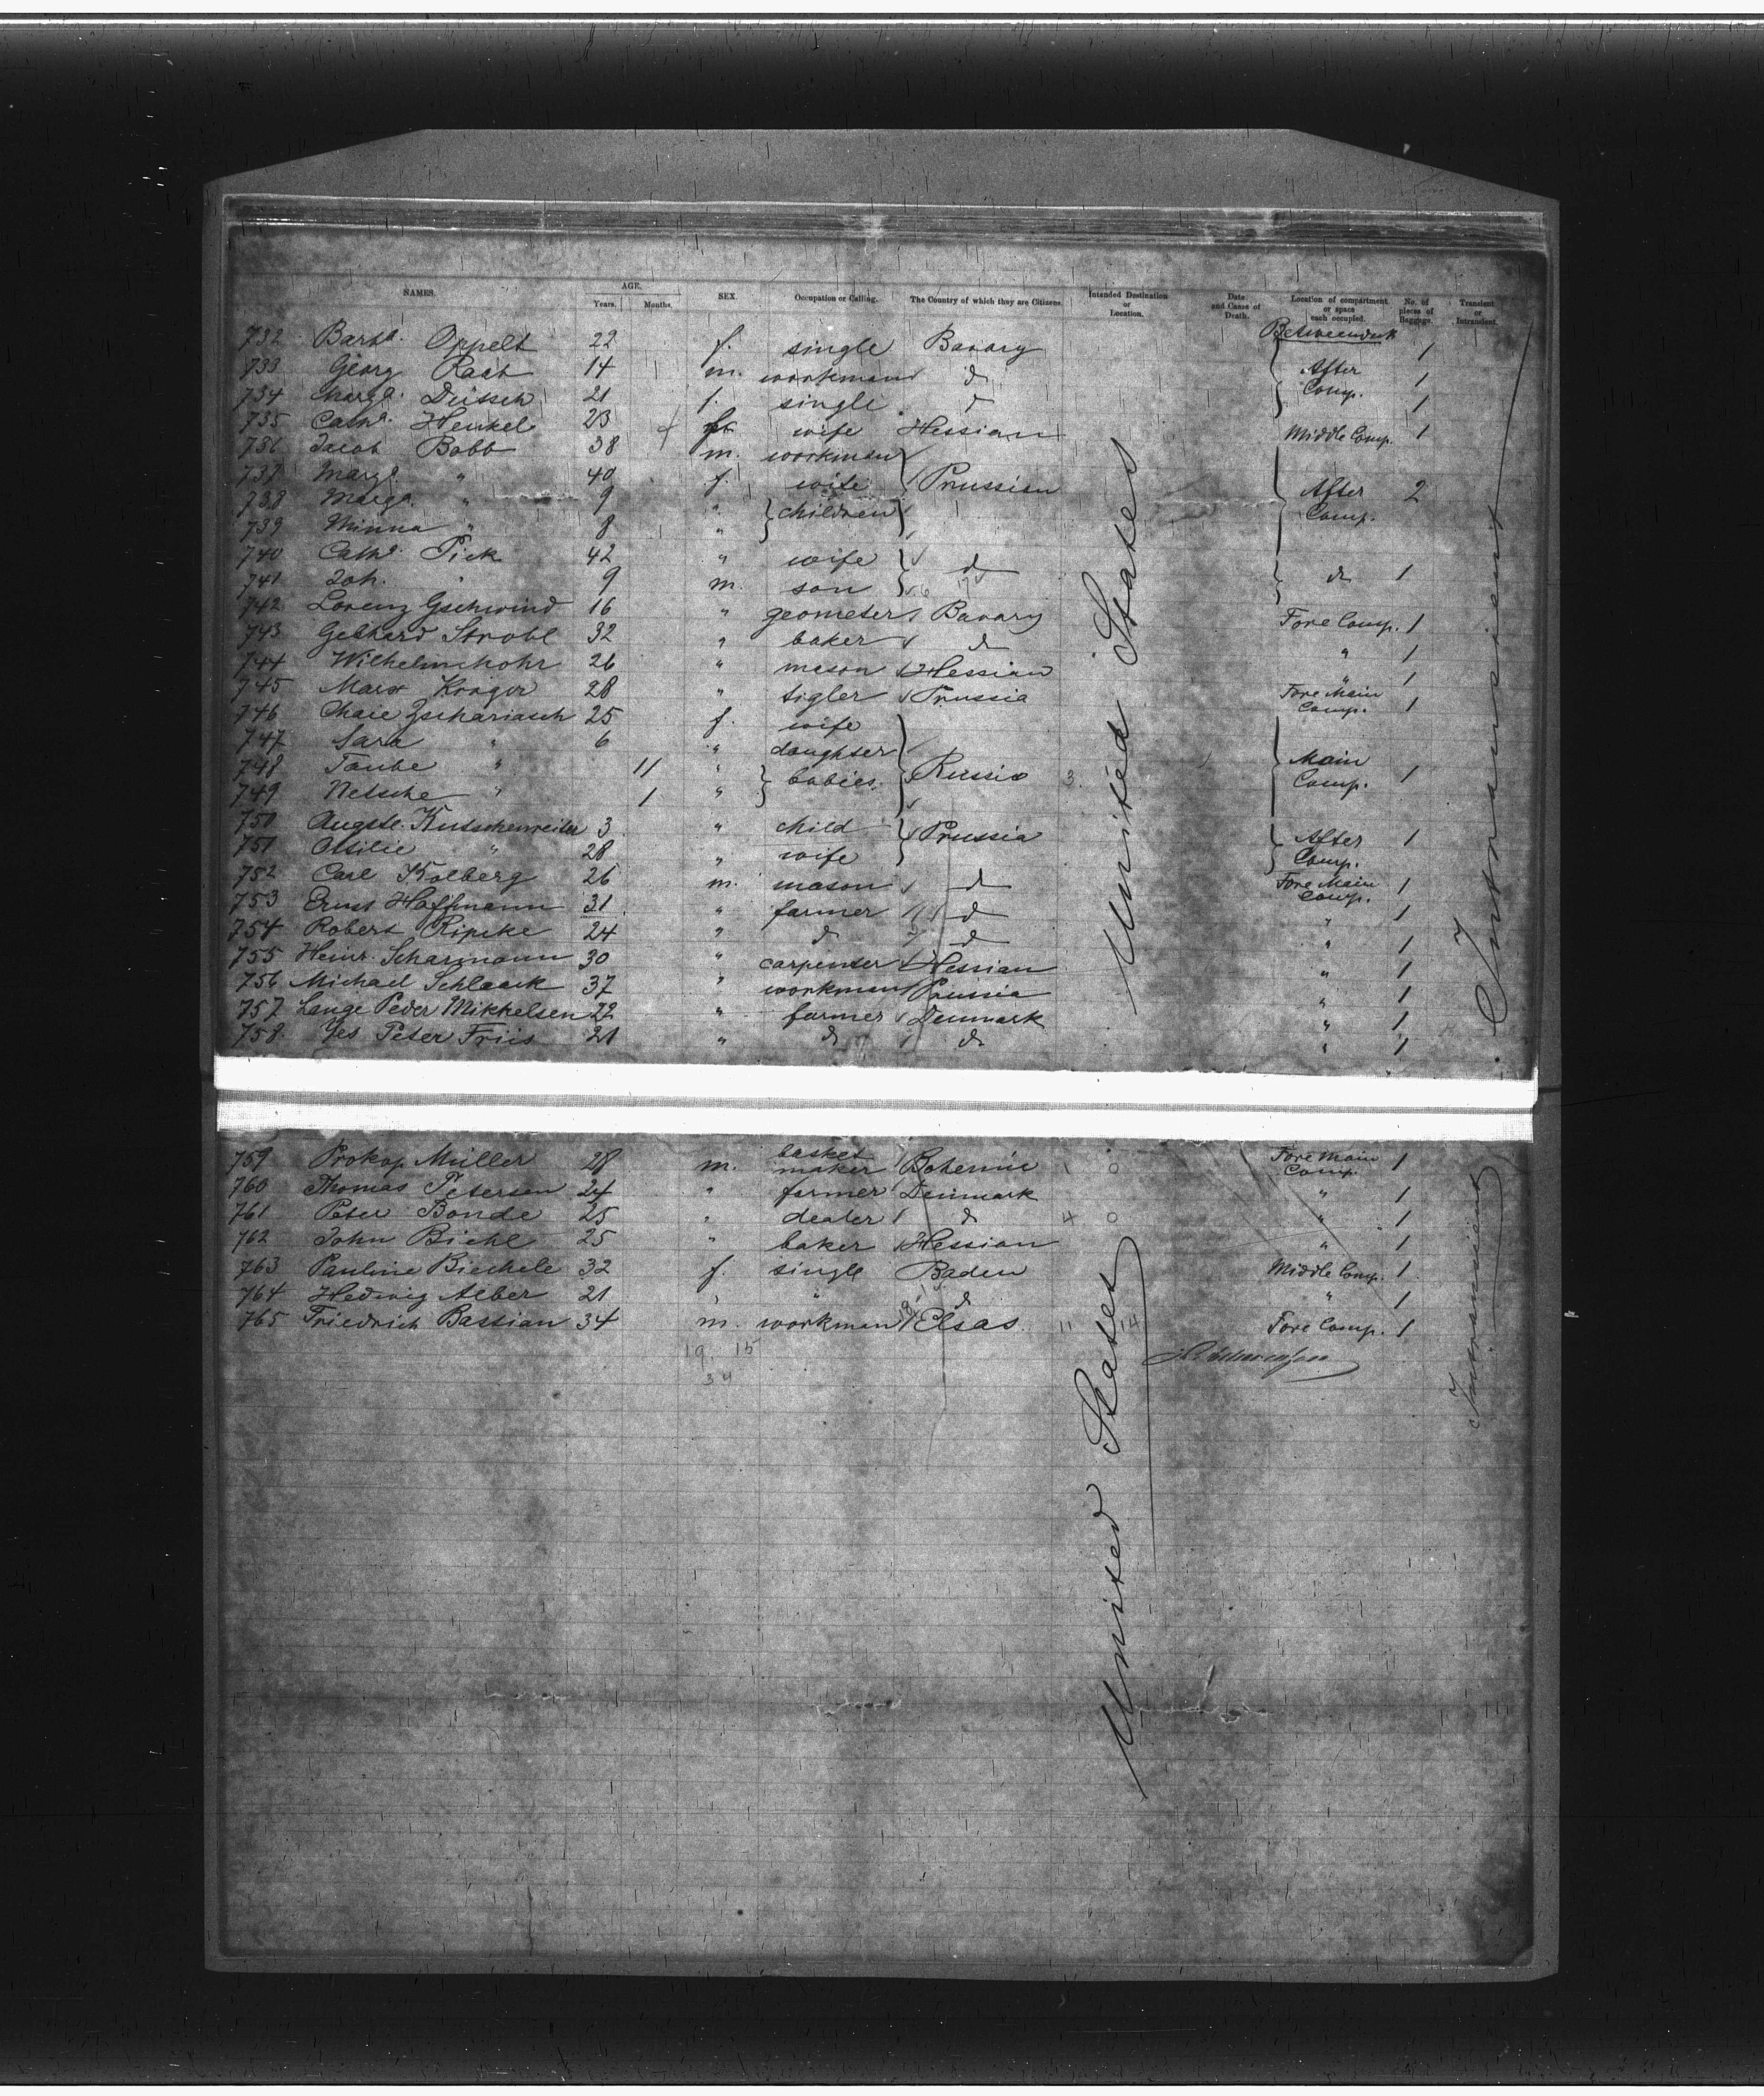 NAMES. AGE. Years. Months. SEX. Occupation or Calling. The Country of which they are Citizens. Intended Destination or Location. Date and Cause of Death. Location of compartment or space each occupied. No. of pieces of Baggage. Transient or Intransient.
Betweendeck
732 Barba. Oppelt 22 f. single Bavary 1
733 Georg 14 m. workman do After Comp. 1
734 Margt. 21 f. single do 1
735 Cathe. Henkel 23 wife Hessian Middle Comp. 1
736 Jacob Bobb 38 m. workman
737 Margt. " 40 f. wife Prussian After Comp. 2
738 Marga. " 9 " children
739 Minna " 8 "
740 Cathe. Pick 42 " wife do
741 Joh. " 9 m. son do 1
742 Lorenz Gschwind 16 " geometer Bavary Fore Comp. 1
743 Gebhard Strobl 32 " baker do " 1
744 Wilhelm Mohr 26 " mason Hessian " 1
745 Marx Kröger 28 " tigler Prussia Fore Main Comp. 1
746 Chaie Zschariasch 25 f. wife
747 Sara " 6 " daughter
748 Taube " 11 " babies Russia 3 Main Comp. 1
749 Netsche " 1 "
750 Augste. Kutschenreiter 3 " child Prussia After Comp. 1
751 Ottilie " 28 " wife
752 Carl Kolberg 26 m. mason do Fore Main Comp. 1
753 Ernst Hoffmann 31 " farmer do " 1
754 Robert Ripcke 24 " do do " 1
755 Heinr. Scharmann 30 " carpenter Hessian " 1
756 Michael Schlaack 37 " workman Prussia " 1
757 Lange Peder Mikkelsen 22 " farmer Denmark " 1
758 Yes Peter Friis 21 " do do " 1
United States
Intransient
759 Prokop Müller 28 m. basket maker Bohemie 1 0 Fore Main Comp. 1
760 Thomas Petersen 24 " farmer Denmark " 1
761 Peter Bonde 25 " dealer do 4 0 " 1
762 John Biehl 25 " baker Hessian " 1
763 Pauline Biechele 32 f. single Baden Middle Comp. 1
764 Hedwig Alber 21 " " do " 1
765 Friedrich Bassian 34 m. workman Elsas 11 14 Fore Comp. 1
19. 15
34
United States
Intransient